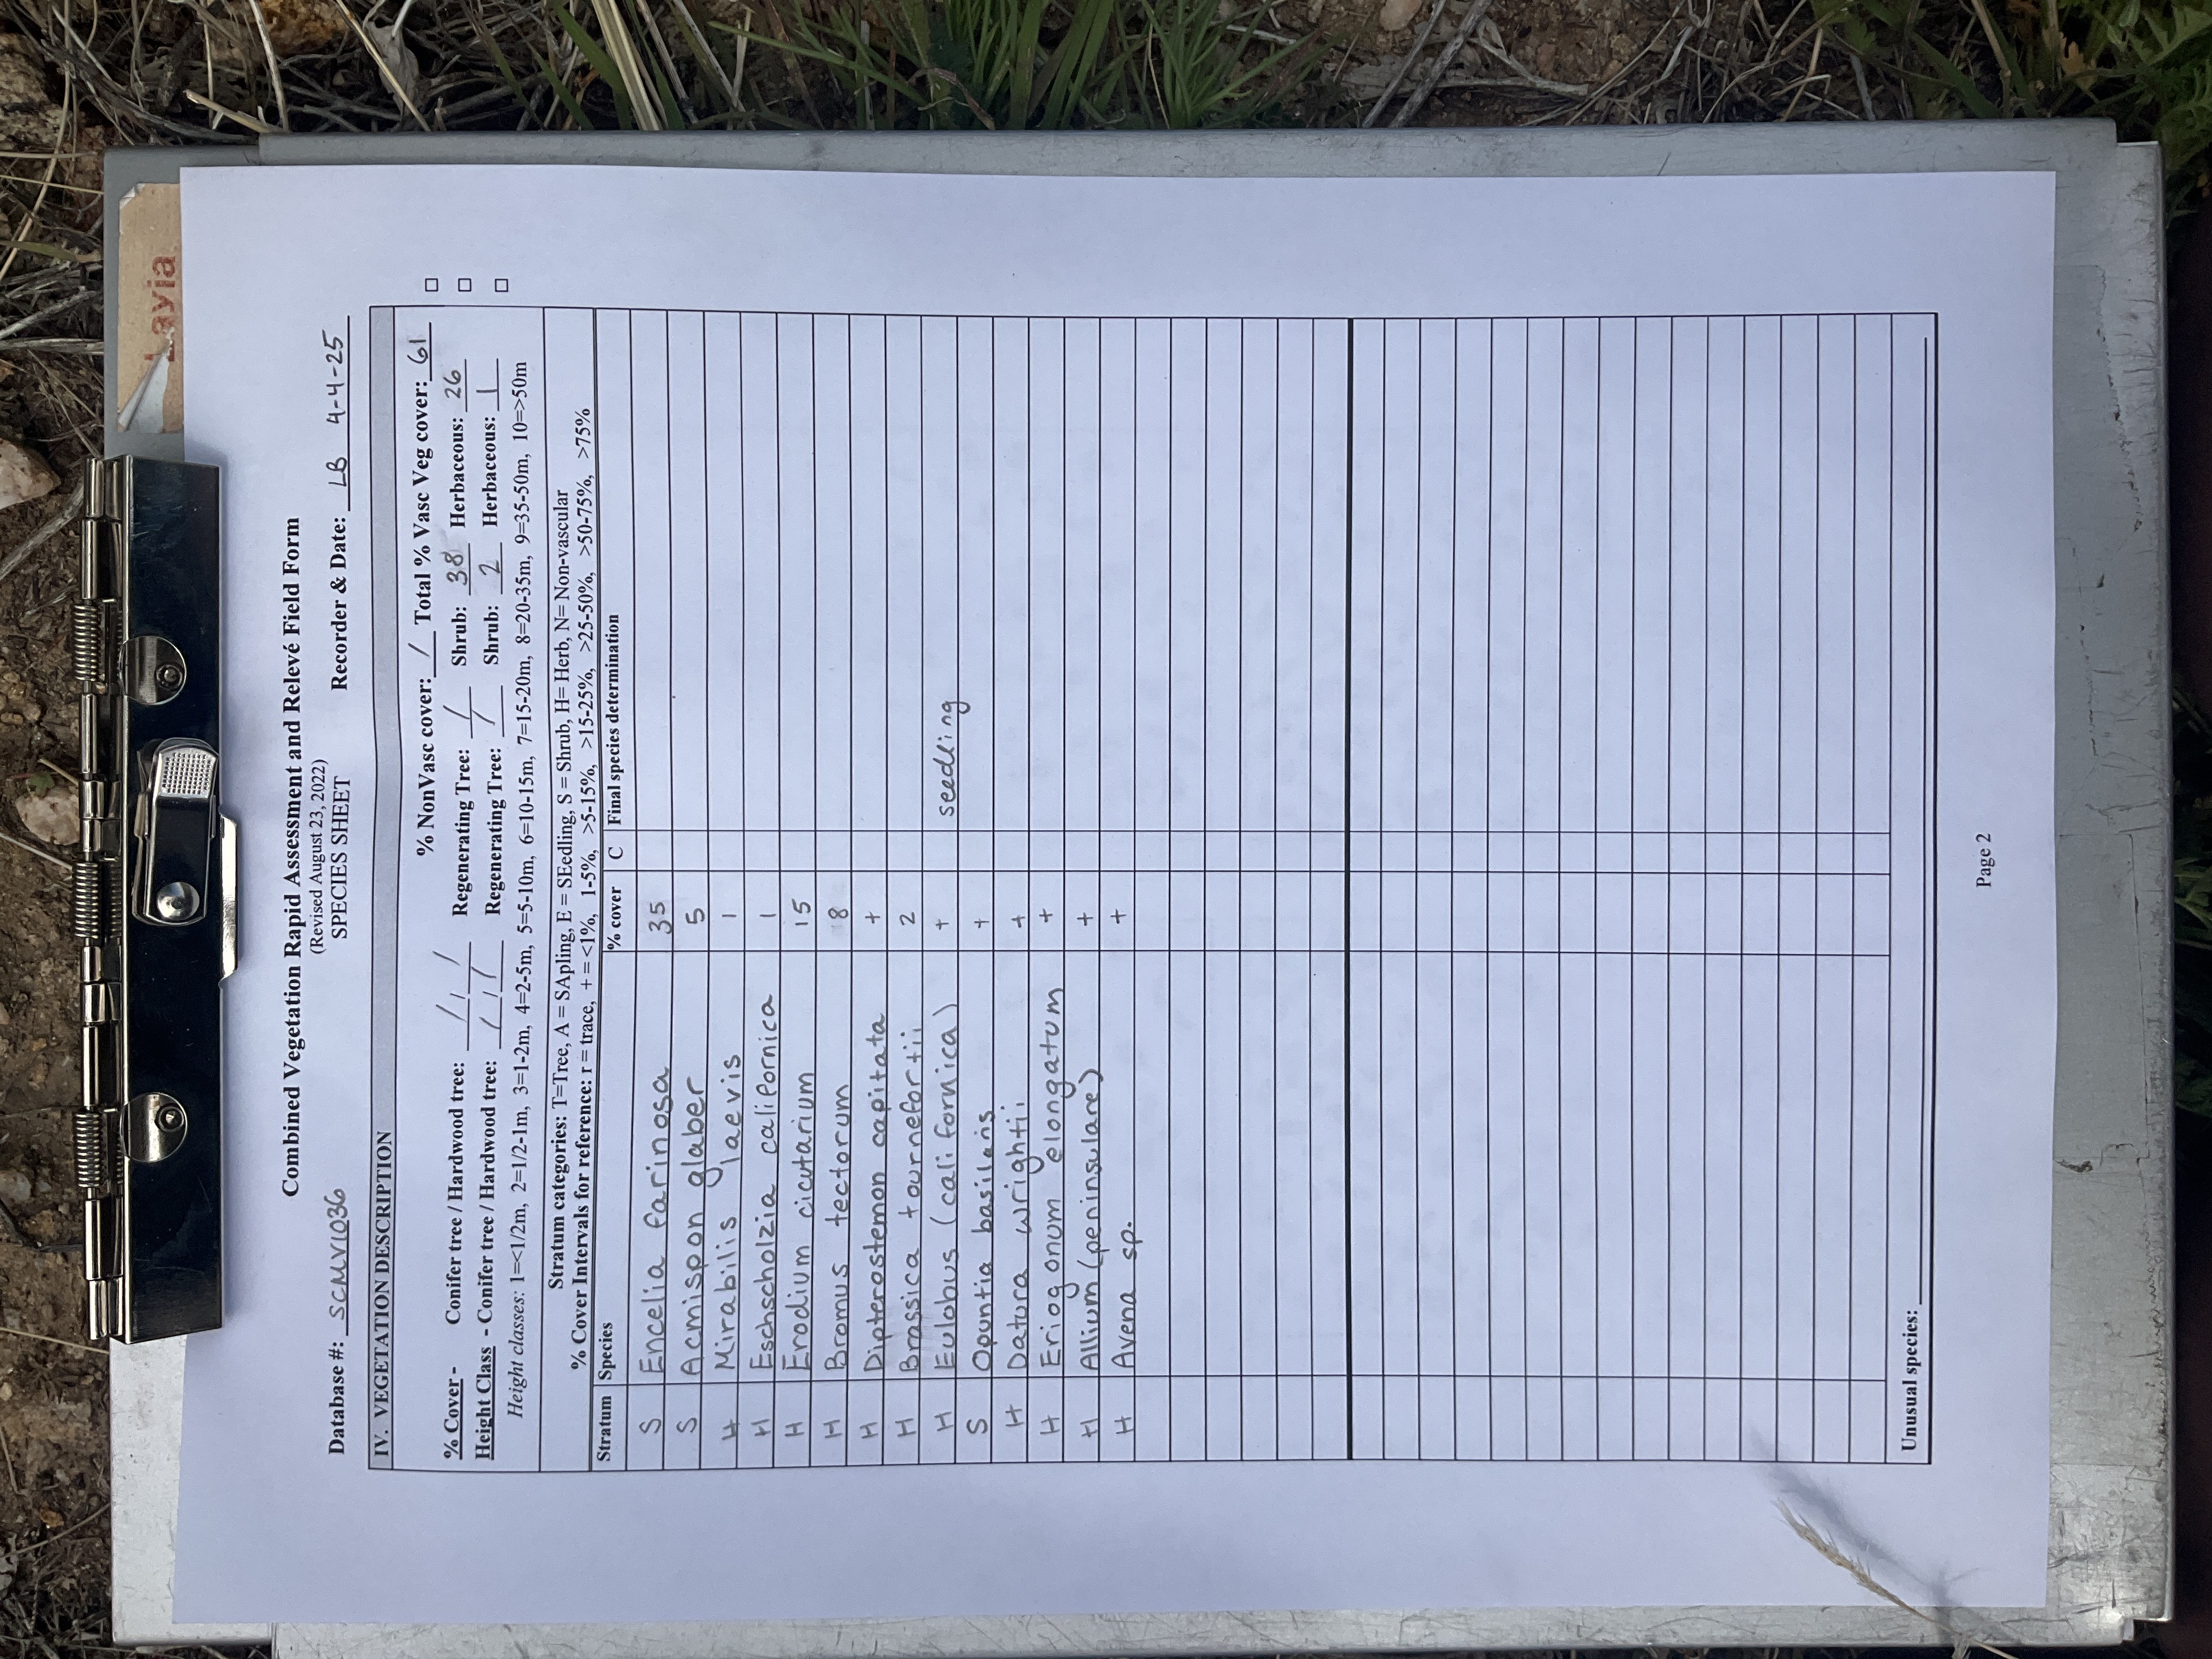 Layia
Combined Vegetation Rapid Assessment and Relevé Field Form
(Revised August 23, 2022)
SPECIES SHEET
Database #: SCMV1036 Recorder & Date: LB 4-4-25
IV. VEGETATION DESCRIPTION
% NonVasc cover: / Total % Vasc Veg cover: 61
% Cover - Conifer tree / Hardwood tree: / / / Regenerating Tree: / Shrub: 38 Herbaceous: 26
Height Class - Conifer tree / Hardwood tree: / / / Regenerating Tree: / Shrub: 2 Herbaceous: 1
Height classes: 1=<1/2m, 2=1/2-1m, 3=1-2m, 4=2-5m, 5=5-10m, 6=10-15m, 7=15-20m, 8=20-35m, 9=35-50m, 10=>50m
Stratum categories: T=Tree, A = SApling, E = SEedling, S = Shrub, H= Herb, N= Non-vascular
% Cover Intervals for reference: r = trace, + = <1%, 1-5%, >5-15%, >15-25%, >25-50%, >50-75%, >75%
Stratum Species % cover C Final species determination
S Encelia farinosa 35
S Acmispon glaber 5
H Mirabilis laevis 1
H Eschscholzia californica 1
H Erodium cicutarium 15
H Bromus tectorum 8
H Dipterostemon capitata +
H Brassica tournefortii 2
H Eulobus (californica) + seedling
S Opuntia basilaris +
H Datura wrightii +
H Eriogonum elongatum +
H Allium (peninsulare) +
H Avena sp. +
Unusual species:
Page 2